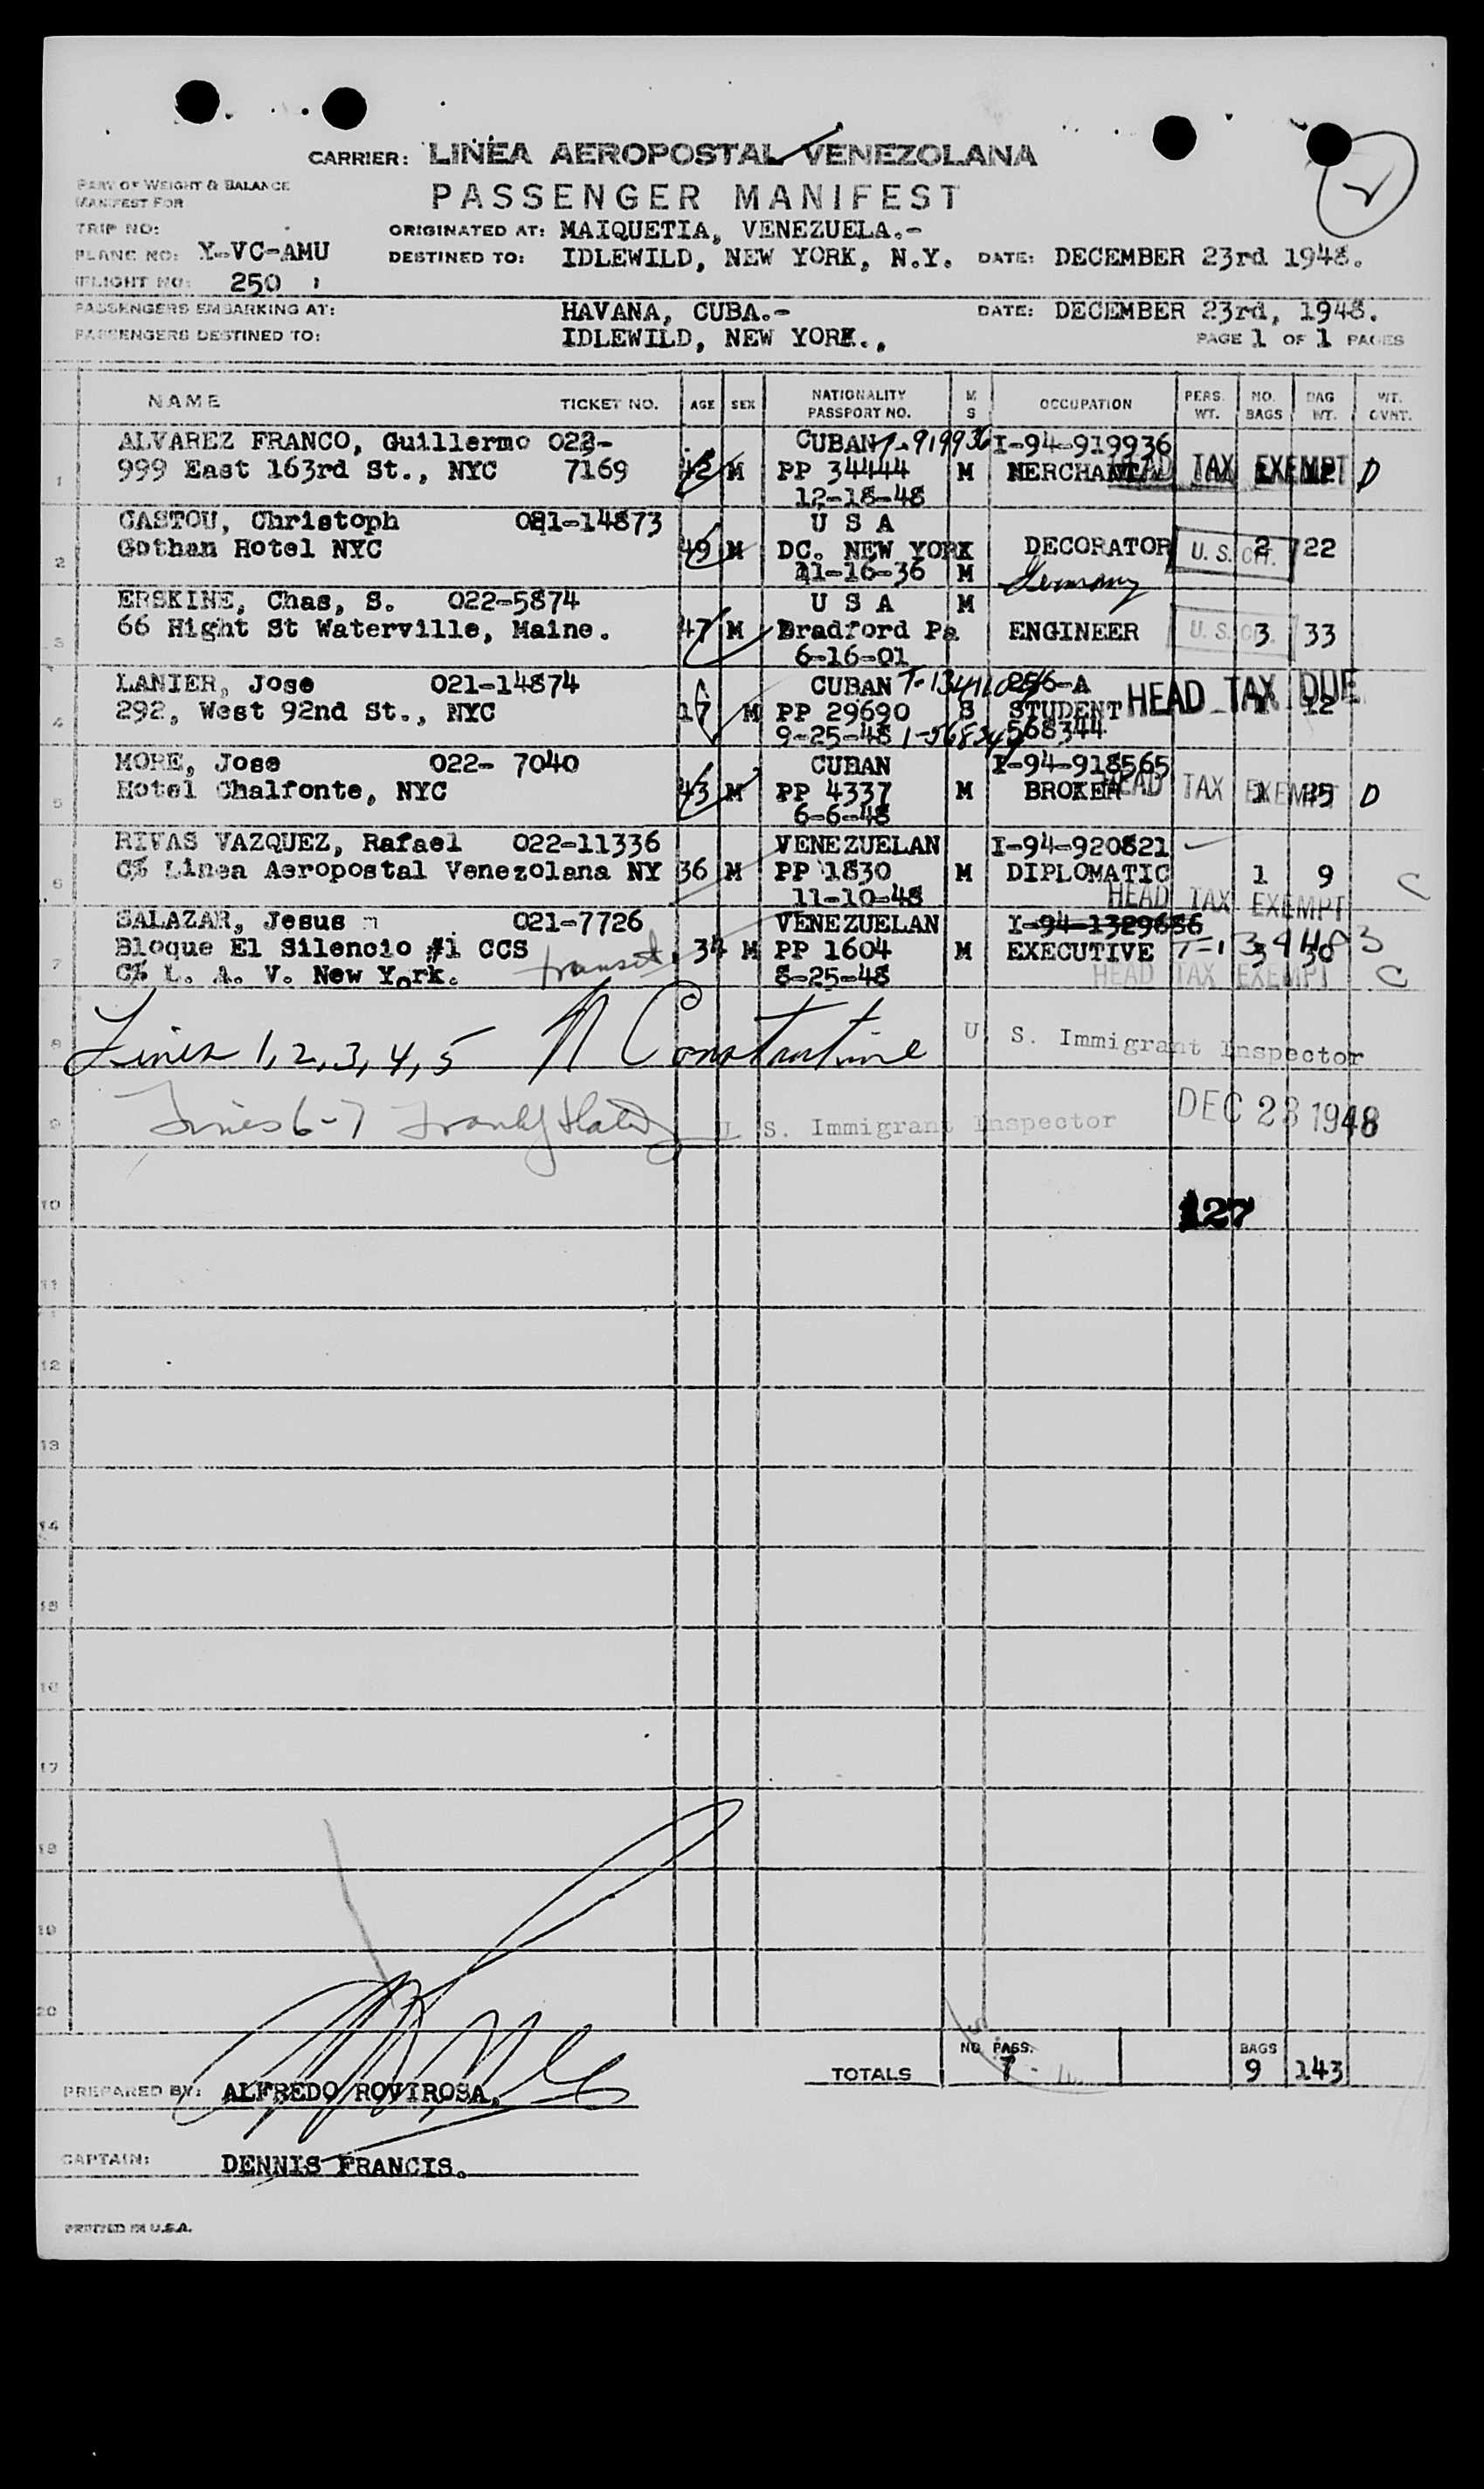 CARRIER: LINEA AEROPOSTAL VENEZOLANA
PART OF WEIGHT & BALANCE
MANIFEST FOR
PASSENGER MANIFEST
2
TRIP NO:
ORIGINATED AT: MAIQUETIA, VENEZUELA.-
PLANE NO: Y-VC-AMU
DESTINED TO: IDLEWILD, NEW YORK, N.Y. DATE: DECEMBER 23rd 1948.
FLIGHT NO: 250
PASSENGERS EMBARKING AT: HAVANA, CUBA.- DATE: DECEMBER 23rd, 1948.
PASSENGERS DESTINED TO: IDLEWILD, NEW YORK., PAGE 1 OF 1 PAGES
NAME TICKET NO. AGE SEX NATIONALITY PASSPORT NO. M S OCCUPATION PERS. WT. NO. BAGS BAG WT. WT. CVNT.
ALVAREZ FRANCO, Guillermo 022- CUBAN I-94-919936
1 999 East 163rd St., NYC 7169 42 M PP 34444 M MERCHANT HEAD TAX EXEMPT D
12-18-48
GASTOU, Christoph 021-14873 U S A
2 Gothan Hotel NYC 49 M DC. NEW YORK DECORATOR U. S. CIT. 2 22
11-16-36 M Germany
ERSKINE, Chas, S. 022-5874 U S A M
3 66 Hight St Waterville, Maine. 47 M Bradford Pa ENGINEER U. S. CIT. 3 33
6-16-01
LANIER, Jose 021-14874 CUBAN 256-A
4 292, West 92nd St., NYC 17 M PP 29690 S STUDENT HEAD TAX DUE 12
9-25-48 1-568344 568344
MORE, Jose 022- 7040 CUBAN I-94-918565
5 Hotel Chalfonte, NYC 43 M PP 4337 M BROKER HEAD TAX EXEMPT 1 25 D
6-6-48
RIVAS VAZQUEZ, Rafael 022-11336 VENEZUELAN I-94-920821
6 C% Linea Aeropostal Venezolana NY 36 M PP 1830 M DIPLOMATIC 1 9 C
11-10-48 HEAD TAX EXEMPT
SALAZAR, Jesus 021-7726 VENEZUELAN I-94-1329686
7 Bloque El Silencio #1 CCS transit. 34 M PP 1604 M EXECUTIVE 3 30
C% L. A. V. New York. 8-25-48 HEAD TAX EXEMPT C
8 Lines 1, 2, 3, 4, 5 N Constantine U. S. Immigrant Inspector
9 Lines 6-7 U. S. Immigrant Inspector DEC 23 1948
10 127
11
12
13
14
15
16
17
18
19
20
TOTALS NO. PASS. 7 BAGS 9 143
PREPARED BY: ALFREDO ROVIROSA.
CAPTAIN: DENNIS FRANCIS.
PRINTED IN U.S.A.